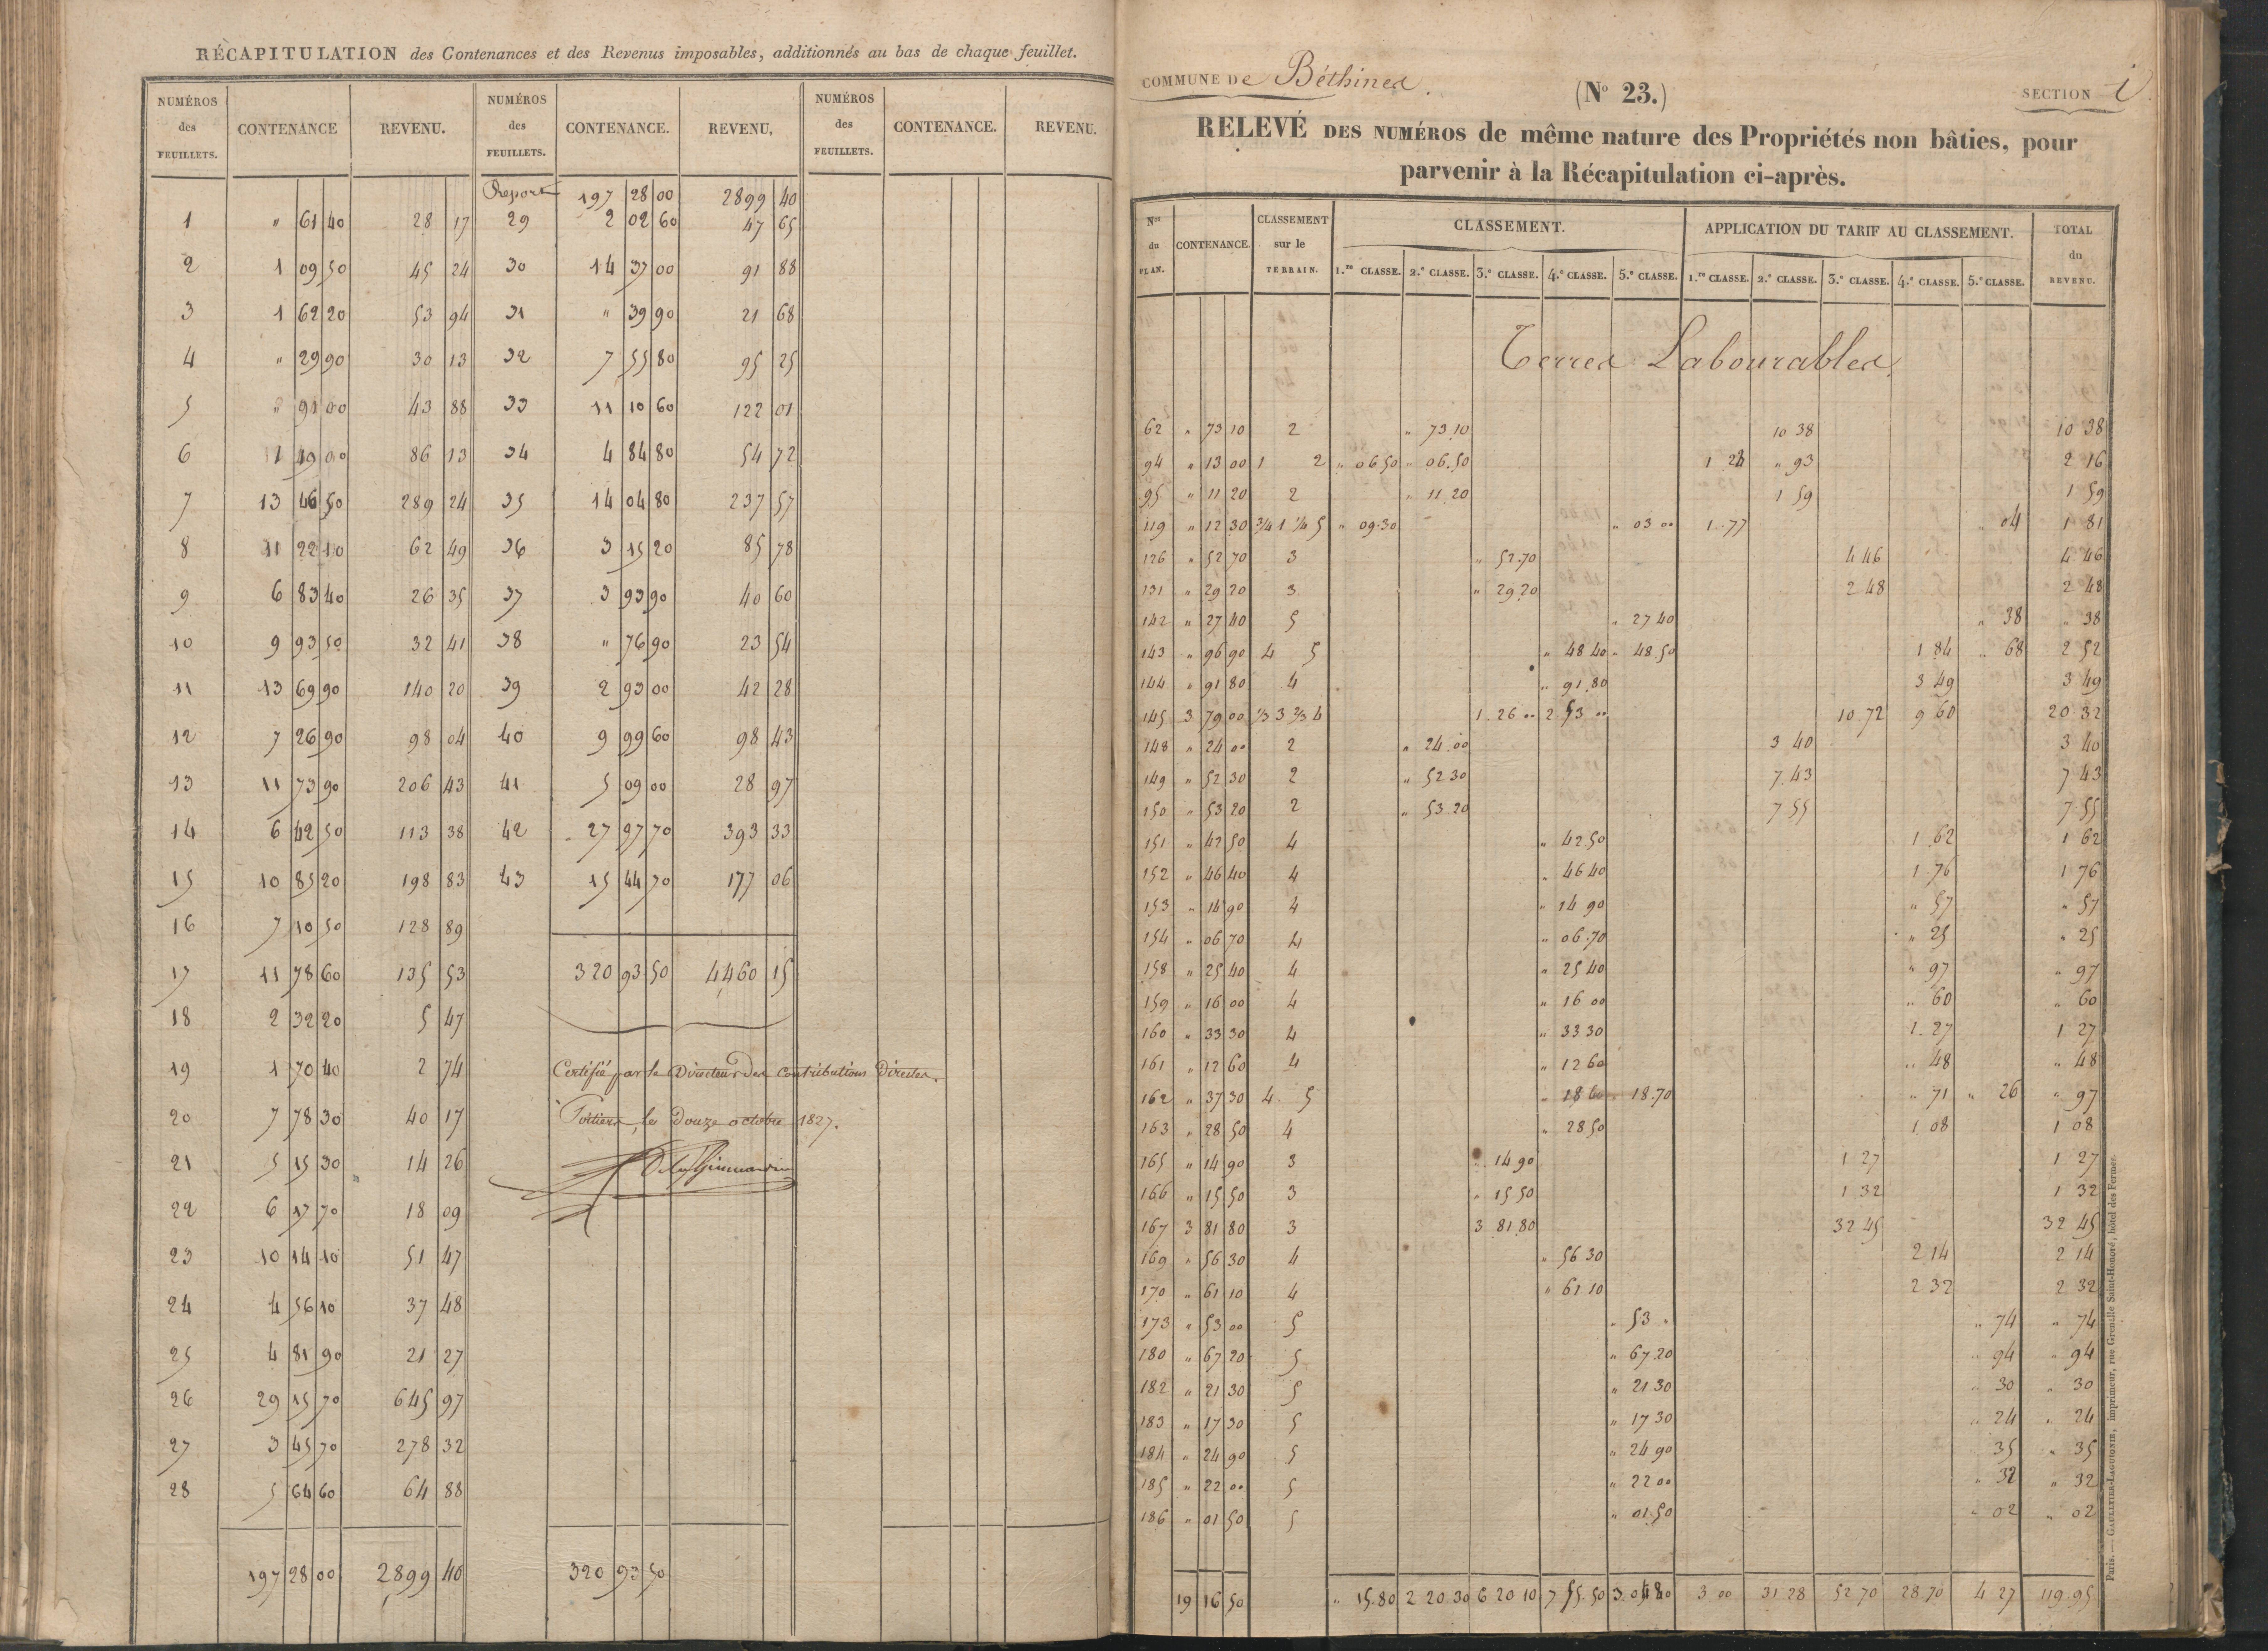 RÉCAPITULATION des Contenances et des Revenus imposables, additionnés au bas de chaque feuillet.
NUMÉROS des FEUILLETS. CONTENANCE REVENU. NUMÉROS des FEUILLETS. CONTENANCE. REVENU. NUMÉROS des FEUILLETS. CONTENANCE. REVENU.
Report 197 28 00 2899 40
1 " 61 40 28 17 29 2 02 60 47 65
2 1 09 50 45 24 30 14 37 00 91 88
3 1 62 20 53 94 31 " 39 90 21 68
4 " 29 90 30 13 32 7 55 80 95 25
5 " 91 00 43 88 33 11 10 60 122 01
6 1 49 00 86 13 34 4 84 80 54 72
7 13 46 50 289 24 35 14 04 80 237 57
8 11 22 10 62 49 36 3 15 20 85 78
9 6 83 40 26 35 37 3 93 90 40 60
10 9 93 50 32 41 38 " 76 90 23 54
11 13 69 90 140 20 39 2 93 00 42 28
12 7 26 90 98 04 40 9 99 60 98 43
13 11 73 90 206 43 41 5 09 00 28 97
14 6 42 50 113 38 42 27 97 70 393 33
15 10 85 20 198 83 43 15 44 70 177 06
16 7 10 50 128 89
17 11 78 60 135 53 320 93 50 4460 15
18 2 32 20 5 47
19 1 70 40 2 74 Certifié par le Directeur des contributions Directes.
20 7 78 30 40 17 Poitiers, le Douze octobre 1827.
21 5 15 30 14 26
22 6 17 70 18 09
23 10 14 10 51 47
24 4 56 10 37 48
25 4 81 90 21 27
26 29 15 70 645 97
27 3 45 70 278 32
28 5 64 60 64 88
197 28 00 2899 40 320 93 50
COMMUNE DE Béthines. (No 23.) SECTION i
RELEVÉ DES NUMÉROS de même nature des Propriétés non bâties, pour
parvenir à la Récapitulation ci-après.
Nos du PLAN. CONTENANCE. CLASSEMENT sur le TERRAIN. CLASSEMENT. APPLICATION DU TARIF AU CLASSEMENT. TOTAL du REVENU.
1.re CLASSE. 2.e CLASSE. 3.e CLASSE. 4.e CLASSE. 5.e CLASSE. 1.re CLASSE. 2.e CLASSE. 3.e CLASSE. 4.e CLASSE. 5.e CLASSE.
Terres Labourables.
62 " 73 10 2 " 73 10 10 38 10 38
94 " 13 00 1 2 " 06 50 " 06 50 1 23 " 93 2 16
95 " 11 20 2 " 11 20 1 59 1 59
119 " 12 30 3/4 1 1/4 5 " 09 30 " 03 00 1 77 " 04 1 81
126 " 52 70 3 " 52 70 4 46 4 46
131 " 29 20 3 " 29 20 2 48 2 48
142 " 27 40 5 " 27 40 " 38 " 38
143 " 96 90 4 5 " 48 40 " 48 50 1 84 " 68 2 52
144 " 91 80 4 " 91 80 3 49 3 49
145 3 79 00 1/3 3 2/3 4 1 26 00 2 53 00 10 72 9 60 20 32
148 " 24 00 2 " 24 00 3 40 3 40
149 " 52 30 2 " 52 30 7 43 7 43
150 " 53 20 2 " 53 20 7 55 7 55
151 " 42 50 4 " 42 50 1 62 1 62
152 " 46 40 4 " 46 40 1 76 1 76
153 " 14 90 4 " 14 90 " 57 " 57
154 " 06 70 4 " 06 70 " 25 " 25
158 " 25 40 4 " 25 40 " 97 " 97
159 " 16 00 4 " 16 00 " 60 " 60
160 " 33 30 4 " 33 30 1 27 1 27
161 " 12 60 4 " 12 60 " 48 " 48
162 " 37 30 4 5 " 18 60 18 70 " 71 " 26 " 97
163 " 28 50 4 " 28 50 1 08 1 08
165 " 14 90 3 " 14 90 1 27 1 27
166 " 15 50 3 " 15 50 1 32 1 32
167 3 81 80 3 3 81 80 32 45 32 45
169 " 56 30 4 " 56 30 2 14 2 14
170 " 61 10 4 " 61 10 2 32 2 32
173 " 53 00 5 " 53 " " 74 " 74
180 " 67 20 5 " 67 20 " 94 " 94
182 " 21 30 5 " 21 30 " 30 " 30
183 " 17 30 5 " 17 30 " 24 " 24
184 " 24 90 5 " 24 90 35 " 35
185 " 22 00 5 " 22 00 " 32 " 32
186 " 01 50 5 " 01 50 " 02 " 02
19 16 50 " 15 80 2 20 30 6 20 10 7 55 50 3 04 80 3 00 31 28 52 70 28 70 4 27 119 95
Paris. — GAULTIER-LAGUIONIE, imprimeur, rue Grenelle Saint-Honoré, hôtel des Fermes.